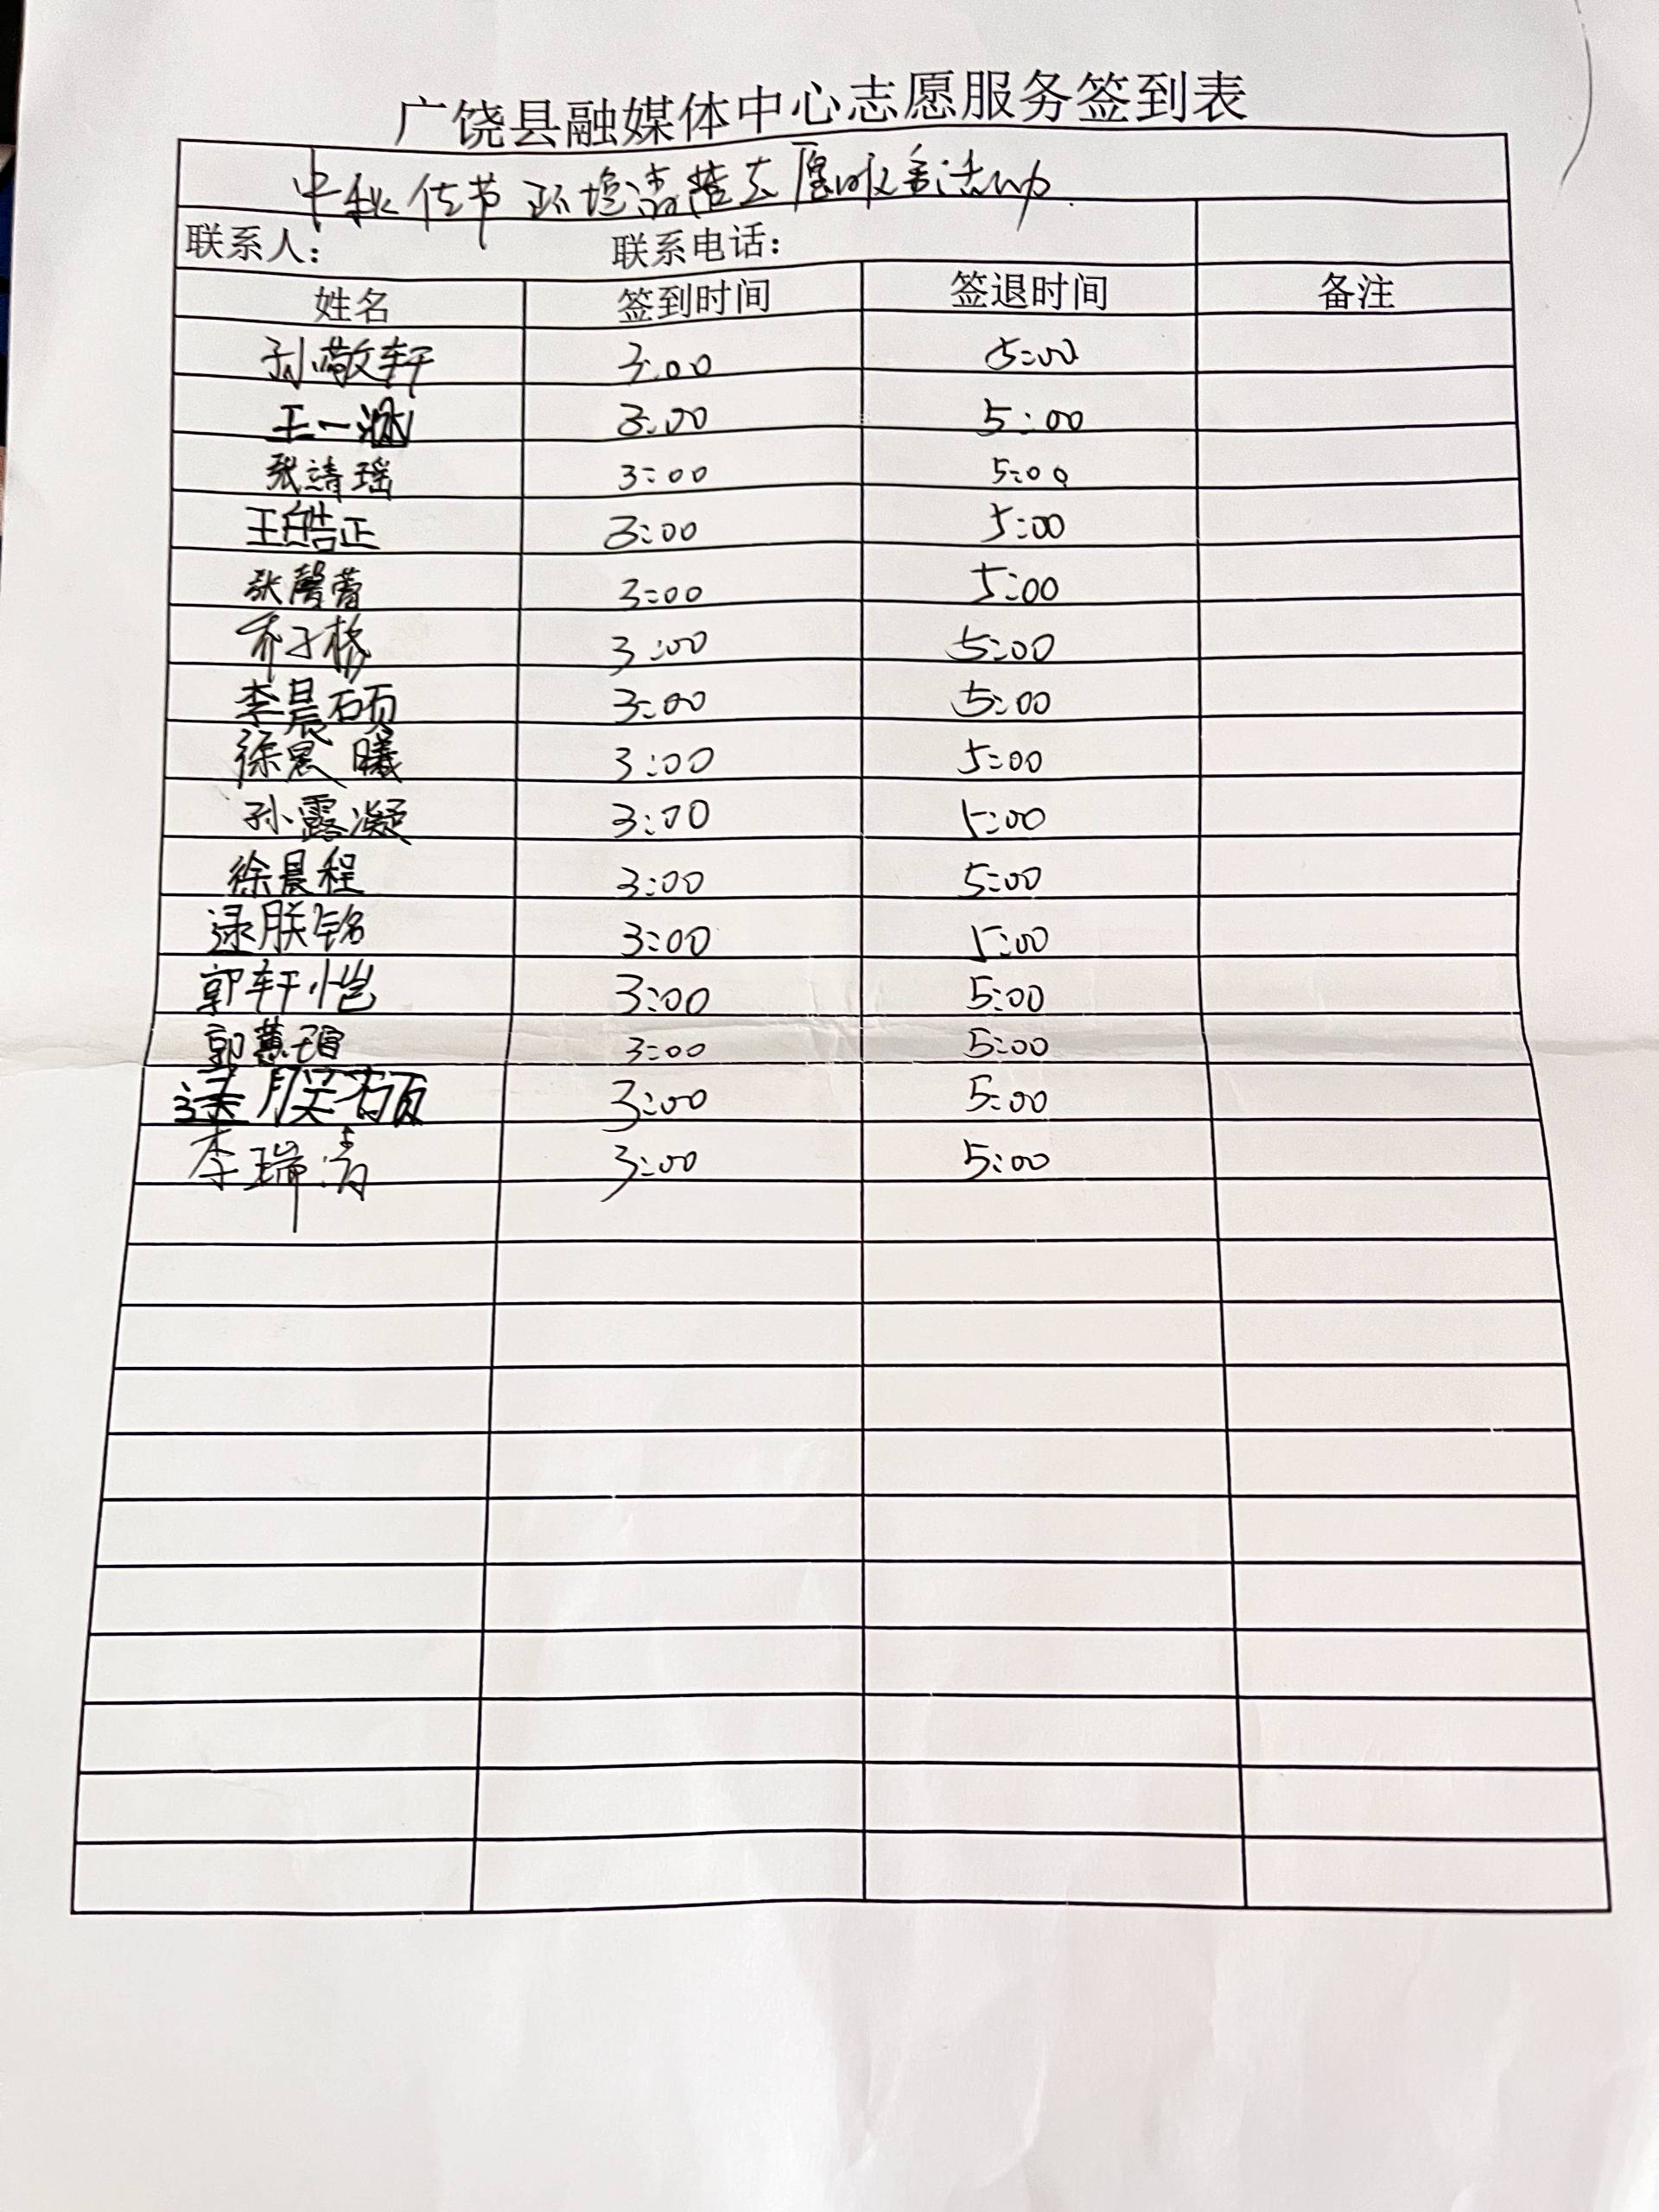 广饶县融媒体中心志愿服务签到表
中秋佳节环境清洁志愿服务活动
联系人: 联系电话:
姓名 签到时间 签退时间 备注
孙敬轩 3:00 5:00
王一 3:00 5:00
张靖瑶 3:00 5:00
王皓正 3:00 5:00
张馨蕾 3:00 5:00
乔子杨 3:00 5:00
李晨硕 3:00 5:00
徐晨曦 3:00 5:00
孙露凝 3:00 5:00
徐晨程 3:00 5:00
逯朕铭 3:00 5:00
郭轩恺 3:00 5:00
郭慧瑄 3:00 5:00
逯朕硕 3:00 5:00
李瑞清 3:00 5:00